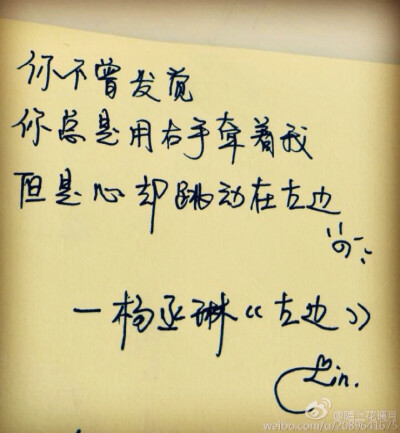 你不曾发觉
你总是用右手牵着我
但是心却跳动在左边
一杨丞琳《左边》
Lin.
weibo.com/u/2089641675